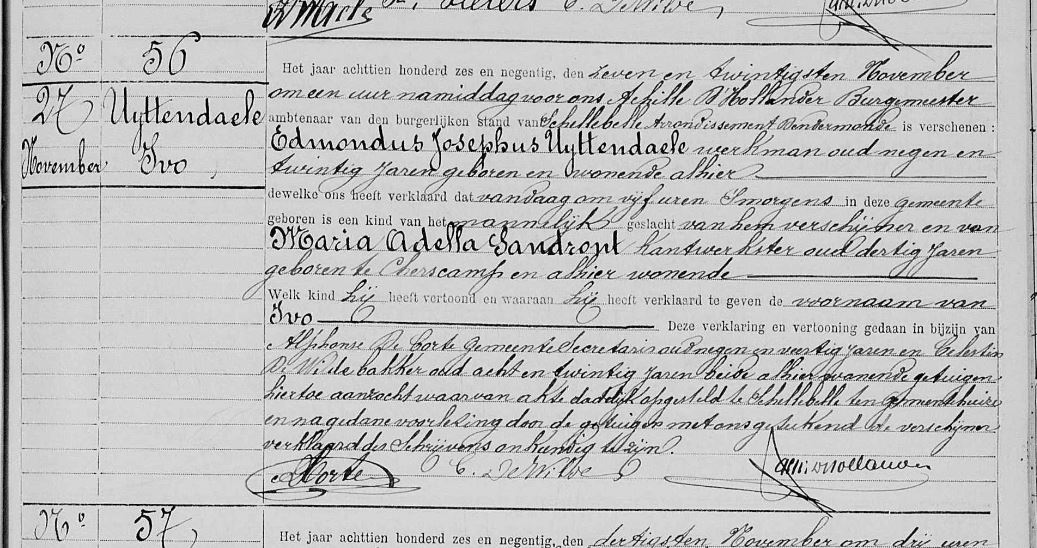 Pieters C. De Wilde,
No 56
27 Uyttendaele
November Ivo,
Het jaar achttien honderd zes en negentig, den zeven en twintigsten November
om een uur namiddag voor ons Achille D'Hollander Burgemeester
ambtenaar van den burgerlijken stand van Schellebelle Arrondissement Dendermonde is verschenen :
Edmondus Josephus Uyttendaele werkman oud negen en
twintig jaren geboren en wonende alhier
dewelke ons heeft verklaard dat vandaag om vijf uren Smorgens in deze gemeente
geboren is een kind van het mannelijk geslacht van hem verschijner en van
Maria Adella Sandront kantwerkster oud dertig jaren
geboren te Cherscamp en alhier wonende
Welk kind hij heeft vertoond en waaraan hij heeft verklaard te geven de voornaam van
Ivo. Deze verklaring en vertooning gedaan in bijzijn van
Alphonse De Corte Gemeente Secretaris oud negen en veertig jaren en Celestin
De Wilde bakker oud acht en twintig jaren beide alhier wonende getuigen
hiertoe aanzocht waarvan akte dadelijk opgesteld te Schellebelle ten gemeentehuize
en na gedane voorlezing door de getuigen met ons geteekend de verschijner
verklaard des Schrijvens onkundig te zijn.
C. De Wilde
No 57,
Het jaar achttien honderd zes en negentig, den dertigsten November om drij uren